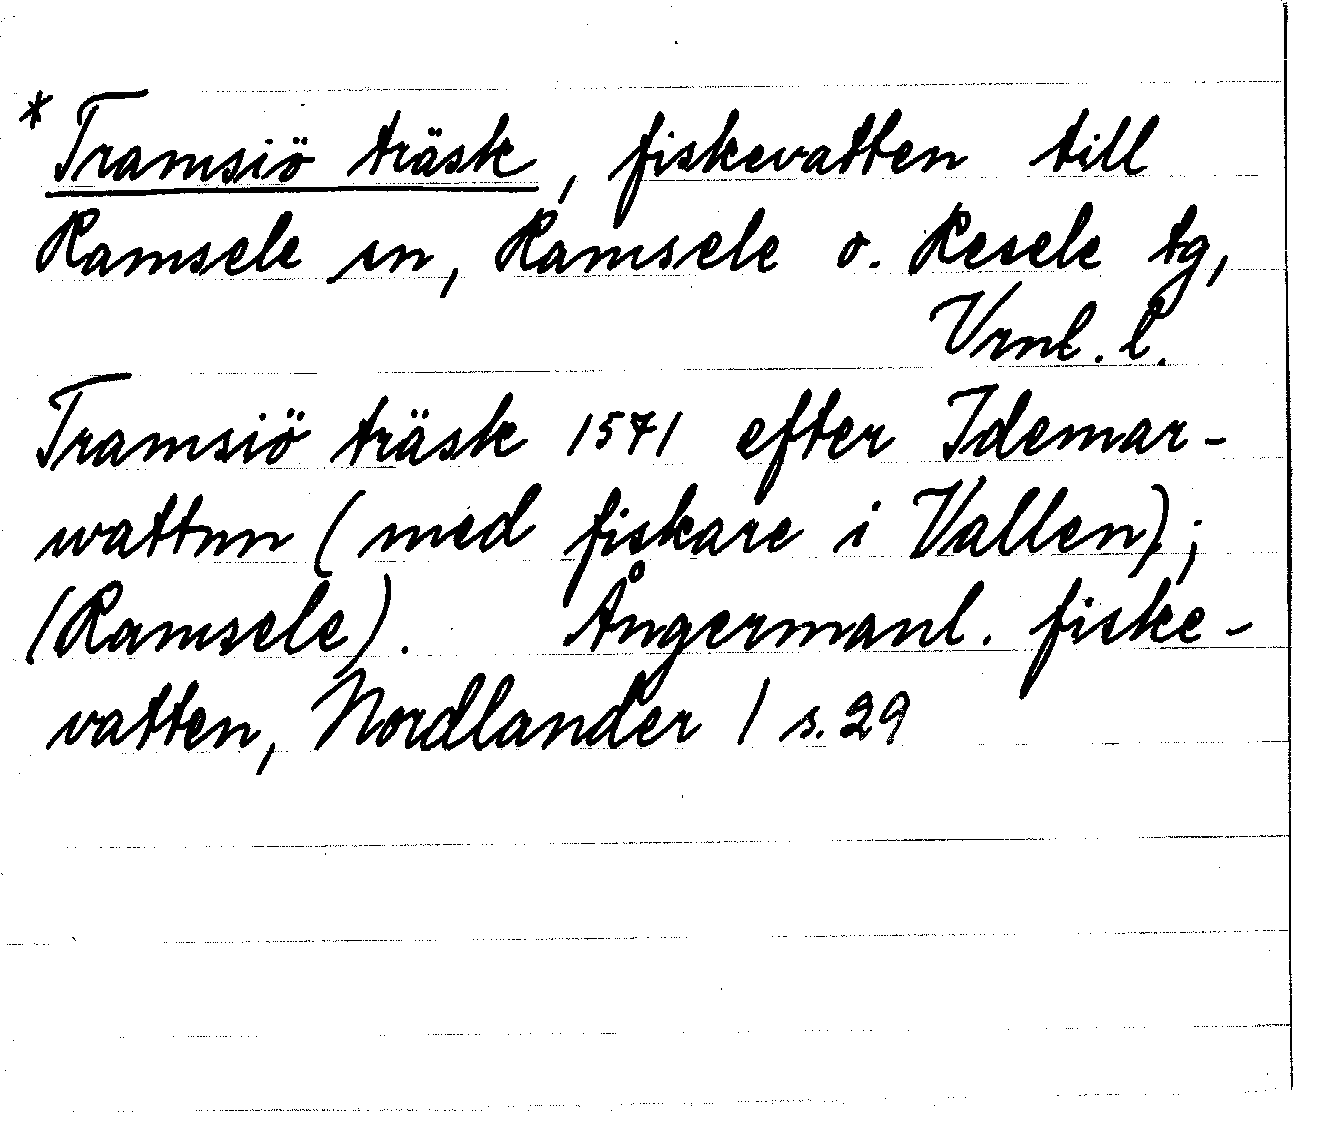 * Tramsiö träsk, fiskevatten till
Ramsele sn, Ramsele o. Resele tg,
Vrnl. l.
Tramsiö träsk 1571 efter Idemar-
wattnn (med fiskare i Vallen);
(Ramsele). Ångermanl. fiske-
vatten, Nordlander 1 s. 29